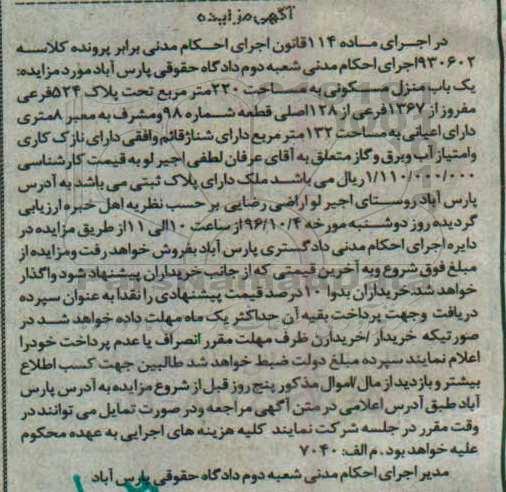 آگهی مزایده
در اجرای ماده ۱۱۴ قانون اجرای احکام مدنی برابر پرونده کلاسه
۹۳۰۶۰۲ اجرای احکام مدنی شعبه دوم دادگاه حقوقی پارس آباد مورد مزایده:
یک باب منزل مسکونی به مساحت ۲۲۰ متر مربع تحت پلاک ۵۲۴ فرعی
مفروز از ۱۳۶۷ فرعی از ۱۲۸ اصلی قطعه شماره ۹۸ ومشرف به معبر ۸ متری
دارای اعیانی به مساحت ۱۳۲ متر مربع دارای شناژ قائم وافقی دارای نازک کاری
وامتیاز آب وبرق و گاز متعلق به آقای عرفان لطفی اجیر لو به قیمت کارشناسی
۱/۱۱۰/۰۰۰/۰۰۰ ریال می باشد ملک دارای پلاک ثبتی می باشد به آدرس
پارس آباد روستای اجیر لو اراضی رضایی بر حسب نظریه اهل خبره ارزیابی
گردیده روز دوشنبه مورخه ۹۶/۱۰/۴ از ساعت ۱۰ الی ۱۱ از طریق مزایده در
دایره اجرای احکام مدنی دادگستری پارس آباد بفروش خواهد رفت ومزایده از
مبلغ فوق شروع وبه آخرین قیمتی که از جانب خریداران پیشنهاد شود واگذار
خواهد شد.خریداران بدوا ۱۰ درصد قیمت پیشنهادی را نقدا به عنوان سپرده
دریافت وجهت پرداخت بقیه آن حداکثر یک ماه مهلت داده خواهد شد در
صورتیکه خریدار /خریدارن ظرف مهلت مقرر انصراف یا عدم پرداخت خودرا
اعلام نمایند سپرده مبلغ دولت ضبط خواهد شد طالبین جهت کسب اطلاع
بیشتر و بازدید از مال/اموال مذکور پنج روز قبل از شروع مزایده به آدرس پارس
آباد طبق آدرس اعلامی در متن آگهی مراجعه ودر صورت تمایل می توانند در
وقت مقرر در جلسه شرکت نمایند کلیه هزینه های اجرایی به عهده محکوم
علیه خواهد بود.م الف: ۷۰۴۰
مدیر اجرای احکام مدنی شعبه دوم دادگاه حقوقی پارس آباد